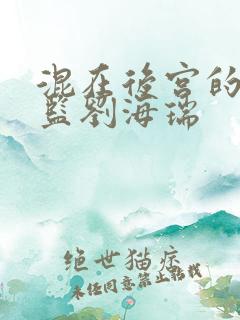 混在後宮的
監劉海瑞
绝世猫症
未经同意禁止转载